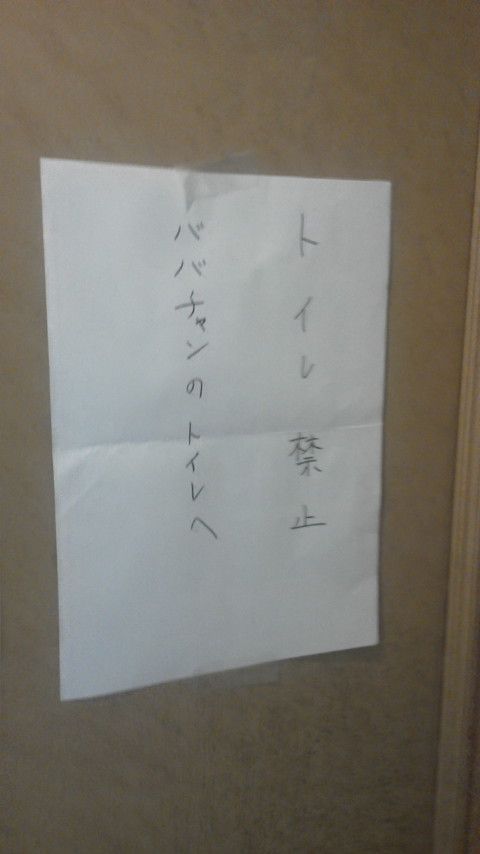 トイレ禁止
ババチャンのトイレへ